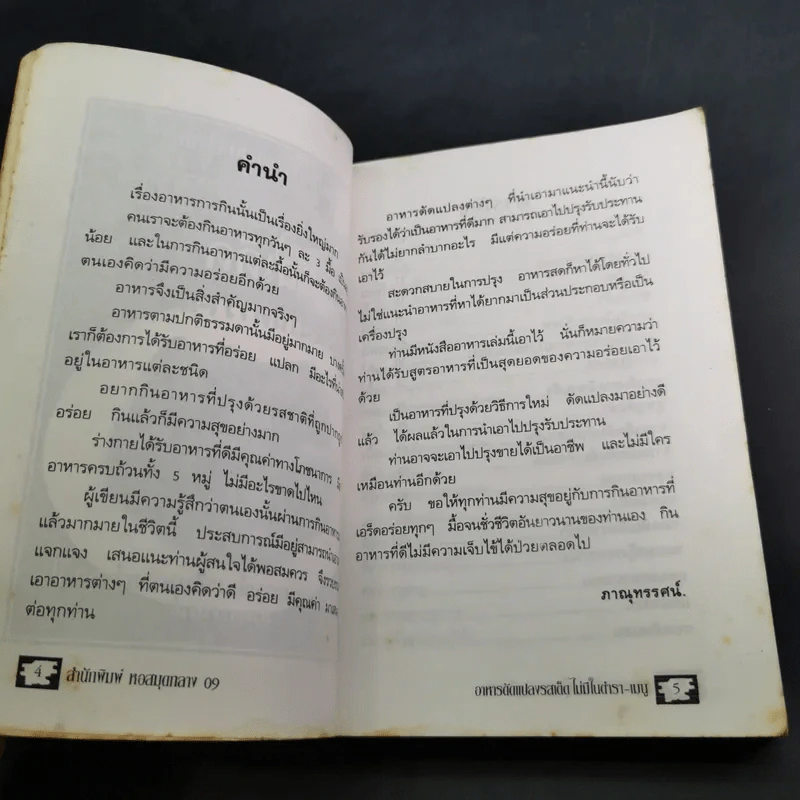 คำนำ
เรื่องอาหารการกินนั้นเป็นเรื่องยิ่งใหญ่มาก
คนเราจะต้องกินอาหารทุกวันๆ ละ 3 มื้อ
น้อย และในการกินอาหารแต่ละมื้อนั้นก็จะต้อง
ตนเองคิดว่ามีความอร่อยอีกด้วย
อาหารจึงเป็นสิ่งสำคัญมากจริงๆ
อาหารตามปกติธรรมดานั้นมีอยู่มากมาย
เราก็ต้องการได้รับอาหารที่อร่อย แปลก มีอะไรที่
อยู่ในอาหารแต่ละชนิด
อยากกินอาหารที่ปรุงด้วยรสชาติที่ถูกปาก
อร่อย กินแล้วก็มีความสุขอย่างมาก
ร่างกายได้รับอาหารที่ดีมีคุณค่าทางโภชนาการ
อาหารครบถ้วนทั้ง 5 หมู่ ไม่มีอะไรขาดไปไหน
ผู้เขียนมีความรู้สึกว่าตนเองนั้นผ่านการกินอาหาร
แล้วมากมายในชีวิตนี้ ประสบการณ์มีอยู่สามารถนำ
แจกแจง เสนอแนะท่านผู้สนใจได้พอสมควร จึง
เอาอาหารต่างๆ ที่ตนเองคิดว่าดี อร่อย มีคุณค่า
ต่อทุกท่าน
4 สำนักพิมพ์ หอสมุดกลาง 09
อาหารดัดแปลงต่างๆ ที่นำเอามาแนะนำนี้นับว่า
รับรองได้ว่าเป็นอาหารที่ดีมาก สามารถเอาไปปรุงรับประทาน
กันได้ไม่ยากลำบากอะไร มีแต่ความอร่อยที่ท่านจะได้รับ
เอาไว้
สะดวกสบายในการปรุง อาหารสดก็หาได้โดยทั่วไป
ไม่ใช่แนะนำอาหารที่หาได้ยากมาเป็นส่วนประกอบหรือเป็น
เครื่องปรุง
ท่านมีหนังสืออาหารเล่มนี้เอาไว้ นั่นก็หมายความว่า
ท่านได้รับสูตรอาหารที่เป็นสุดยอดของความอร่อยเอาไว้
ด้วย
เป็นอาหารที่ปรุงด้วยวิธีการใหม่ ดัดแปลงมาอย่างดี
แล้ว ได้ผลแล้วในการนำเอาไปปรุงรับประทาน
ท่านอาจจะเอาไปปรุงขายได้เป็นอาชีพ และไม่มีใคร
เหมือนท่านอีกด้วย
ครับ ขอให้ทุกท่านมีความสุขอยู่กับการกินอาหารที่
เอร็ดอร่อยทุกๆ มื้อจนชั่วชีวิตอันยาวนานของท่านเอง กิน
อาหารที่ดีไม่มีความเจ็บไข้ได้ป่วยตลอดไป
ภาณุทรรศน์.
อาหารดัดแปลงรสเด็ด ไม่มีในตำรา-เมนู 5